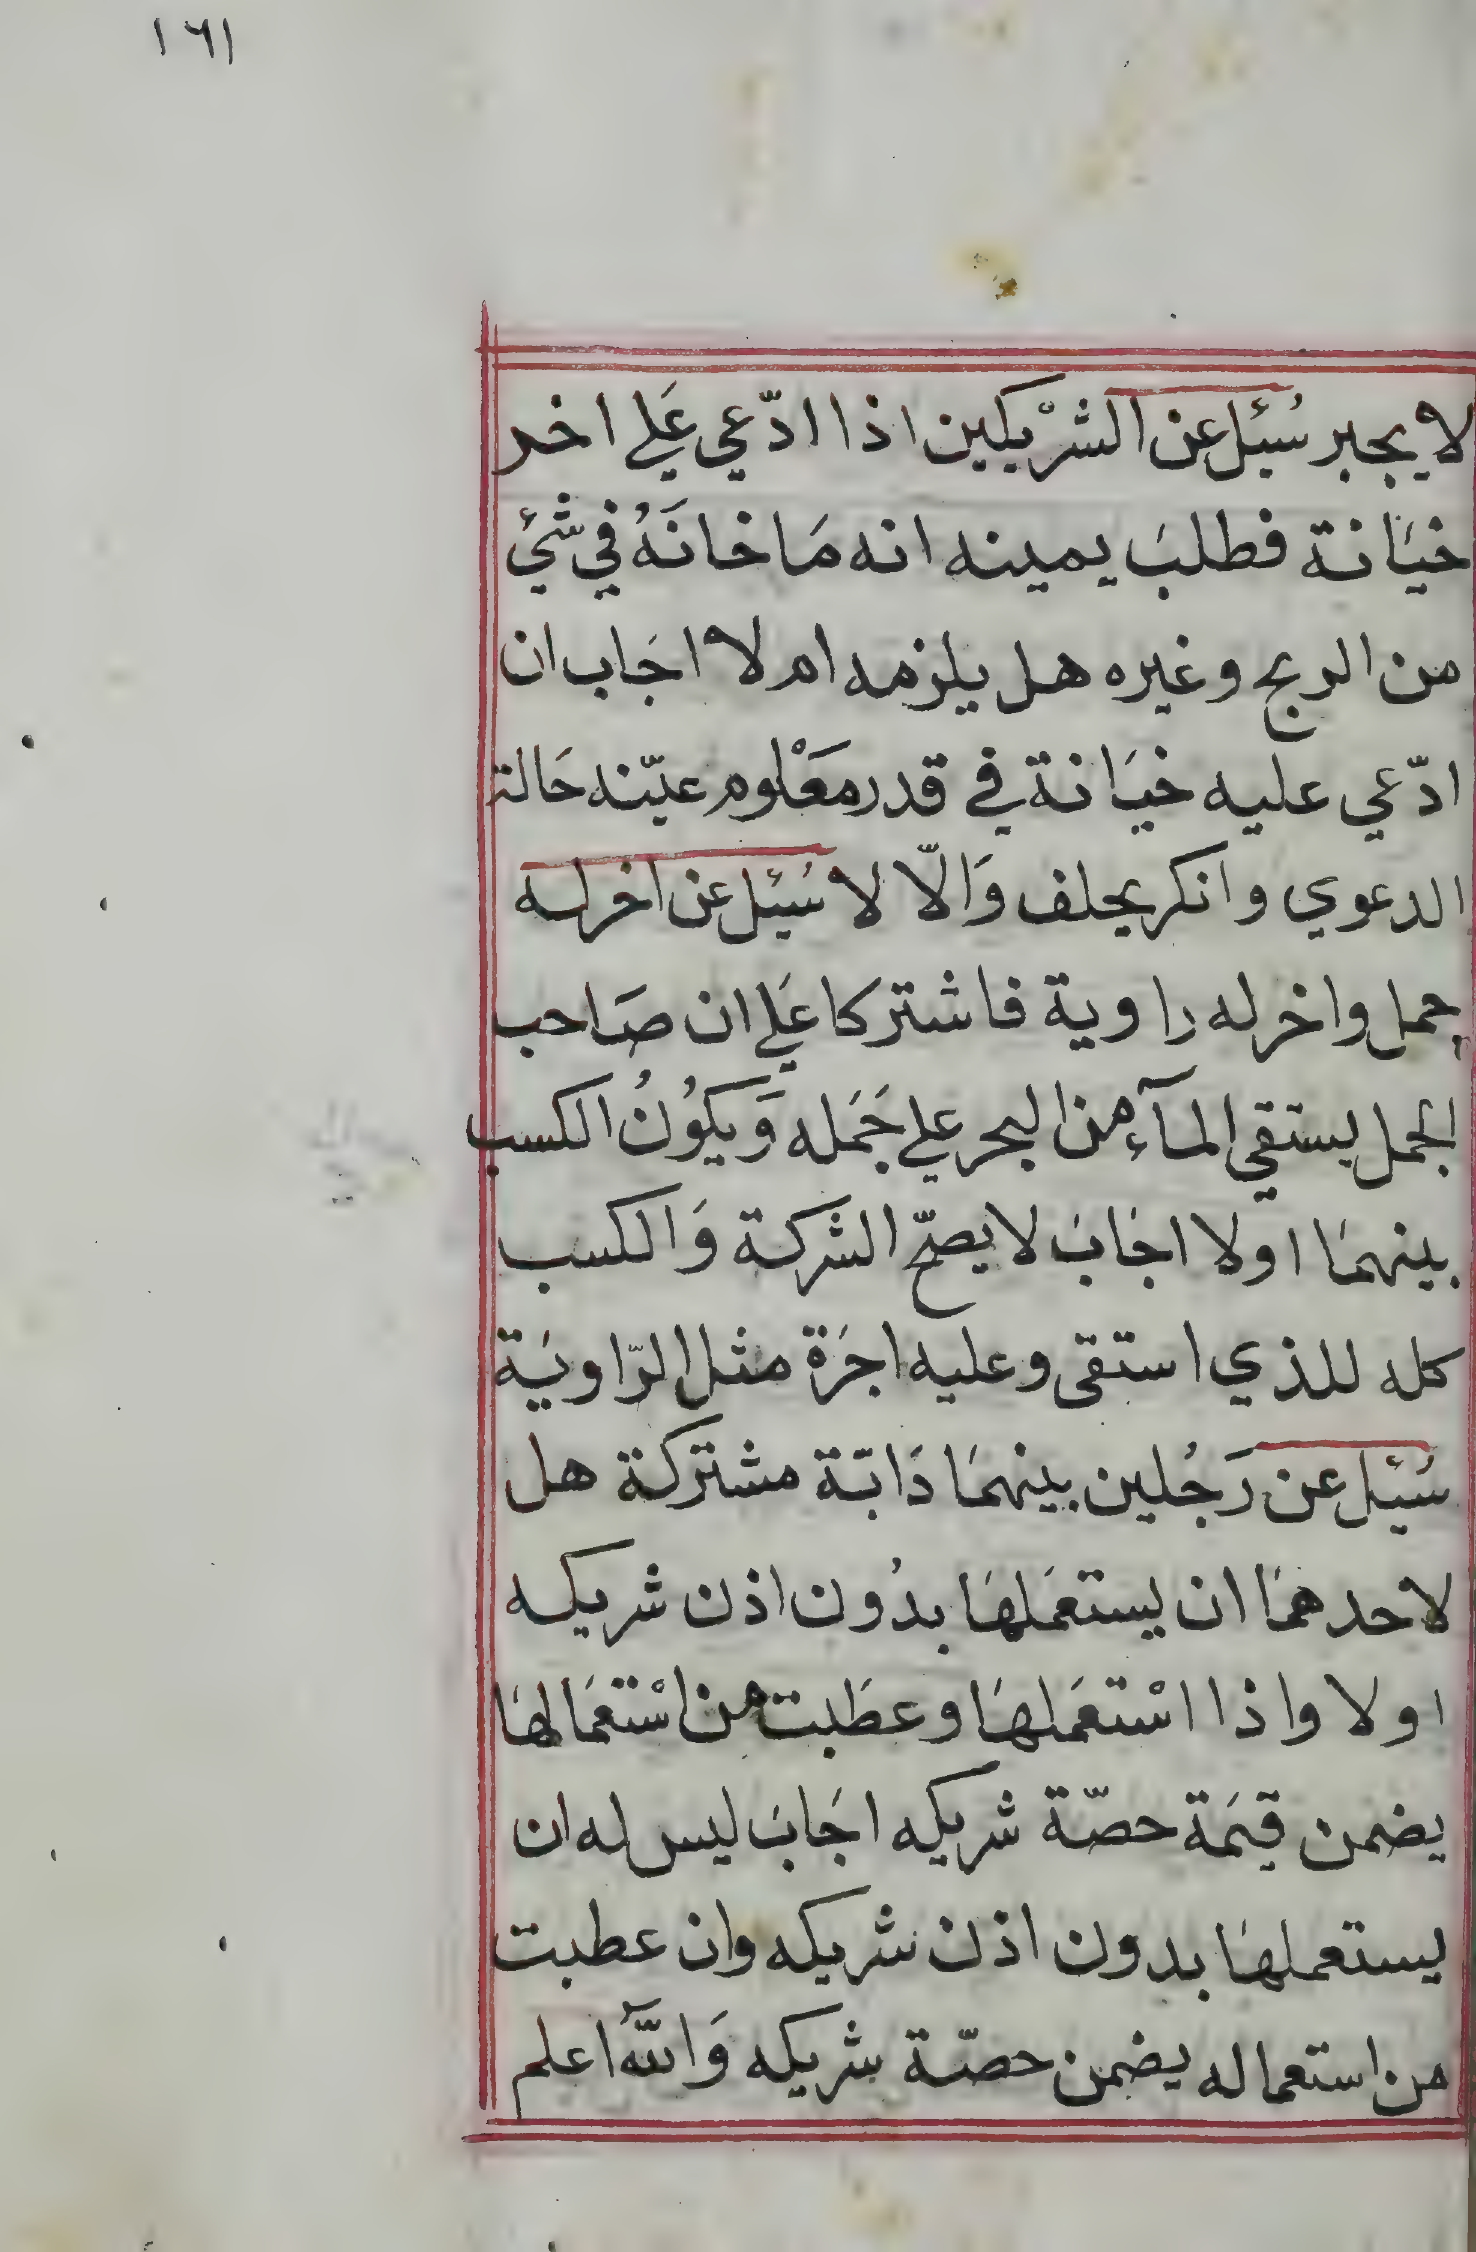 ١٦١
لا يجبر سُئِل عن الشرْيكين اذا ادّعي عَلي اخر
خيَانة فطلبَ يمينه انه مَا خانَهُ في شئٍ
من الربح وغيره هل يلزمه ام لا اجَاب ان
ادّعي عليه خيَانة في قدر مَعْلوم عيّنه حَالة
الدعوي وانكر يحلف وَالّا لا سُئِل عن اخر له
جمل واخر له راوية فاشتركا عَلي ان صَاحب
الجمل يستقي المآء من البحر علي جَمَله وَيكوُنُ الكسب
بينهمَا اولا اجَابَ لا يصحّ الشركة وَالكسب
كله للذي استقى وعليه اجرَة مثل الرّاويَة
سُئِل عن رَجُلين بينهمَا دَابّة مشتركة هل
لاحدهمَا ان يستعمَلهَا بدُون اذن شريكه
اولا واذا اسْتعمَلهَا وعطَبت من اسْتعمَالهَا
يضمن قيمَة حصّة شريكه اجَابَ ليس له ان
يستعملهَا بدون اذن شريكه وان عطبت
من استعماله يضمن حصّة شريكه وَاللّٰهُ اعلم